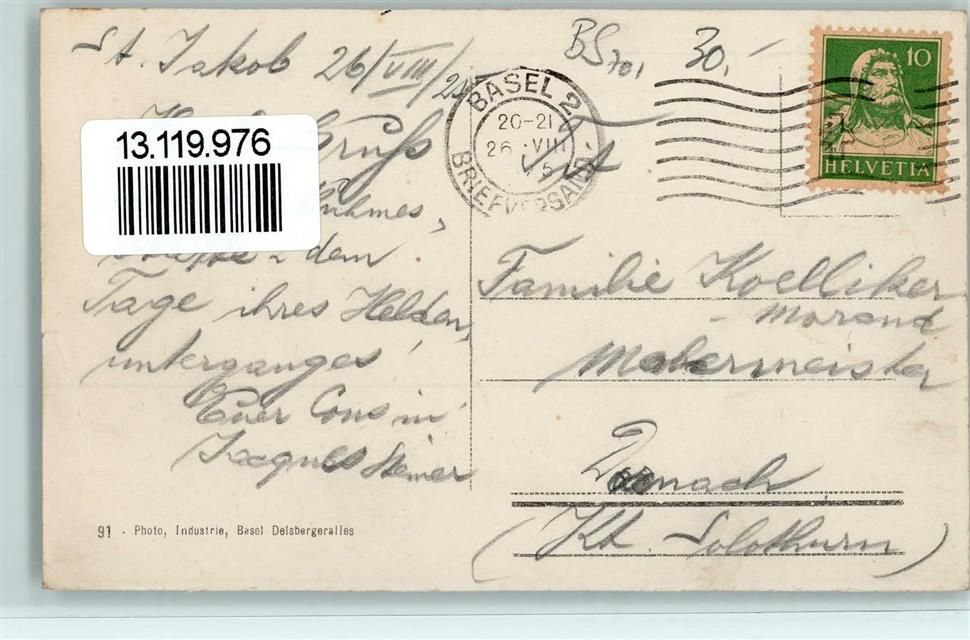 St. Jakob 26/VIII/25
BS 701 30,-
BASEL 2
20-21
26. VIII
BRIEFVERSAND
10
HELVETIA
13.119.976
Gruß
Ruhmes,
dem
Tage ihres Helden,
unterganges!
Euer Cousin
Jacques Steiner
Familie Koelliker
- Morand
Malermeister
Dornach
(Kt. Solothurn)
91 - Photo, Industrie, Basel Delsbergeralles